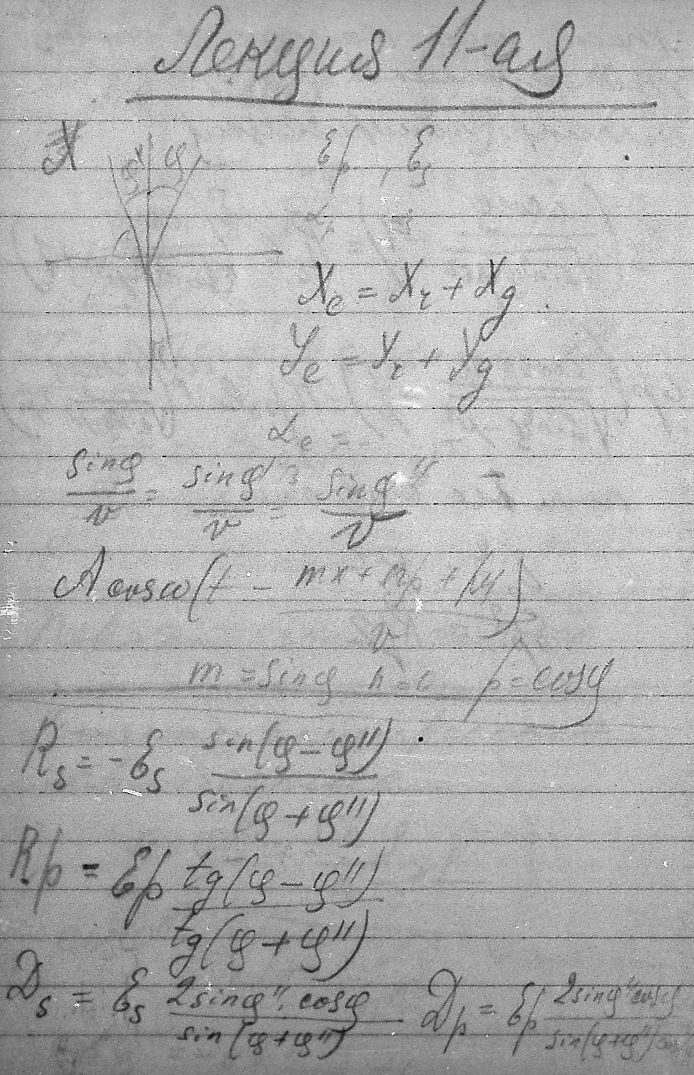 Лекция 11-ая
X φ
Ep, Es
Xe = Xr + Xg
Ye = Yr + Yg
Ze =
sinφ/v = sinφ'/v = sinφ''/v
A cosω(t - (mx + ny + pz)/v)
m = sinφ n = 0 p = cosφ
Rs = -Es sin(φ-φ'')/sin(φ+φ'')
Rp = Ep tg(φ-φ'')/tg(φ+φ'')
Ds = Es 2sinφ''·cosφ/sin(φ+φ'') Dp = Ep 2sinφ''cosφ/sin(φ+φ'')